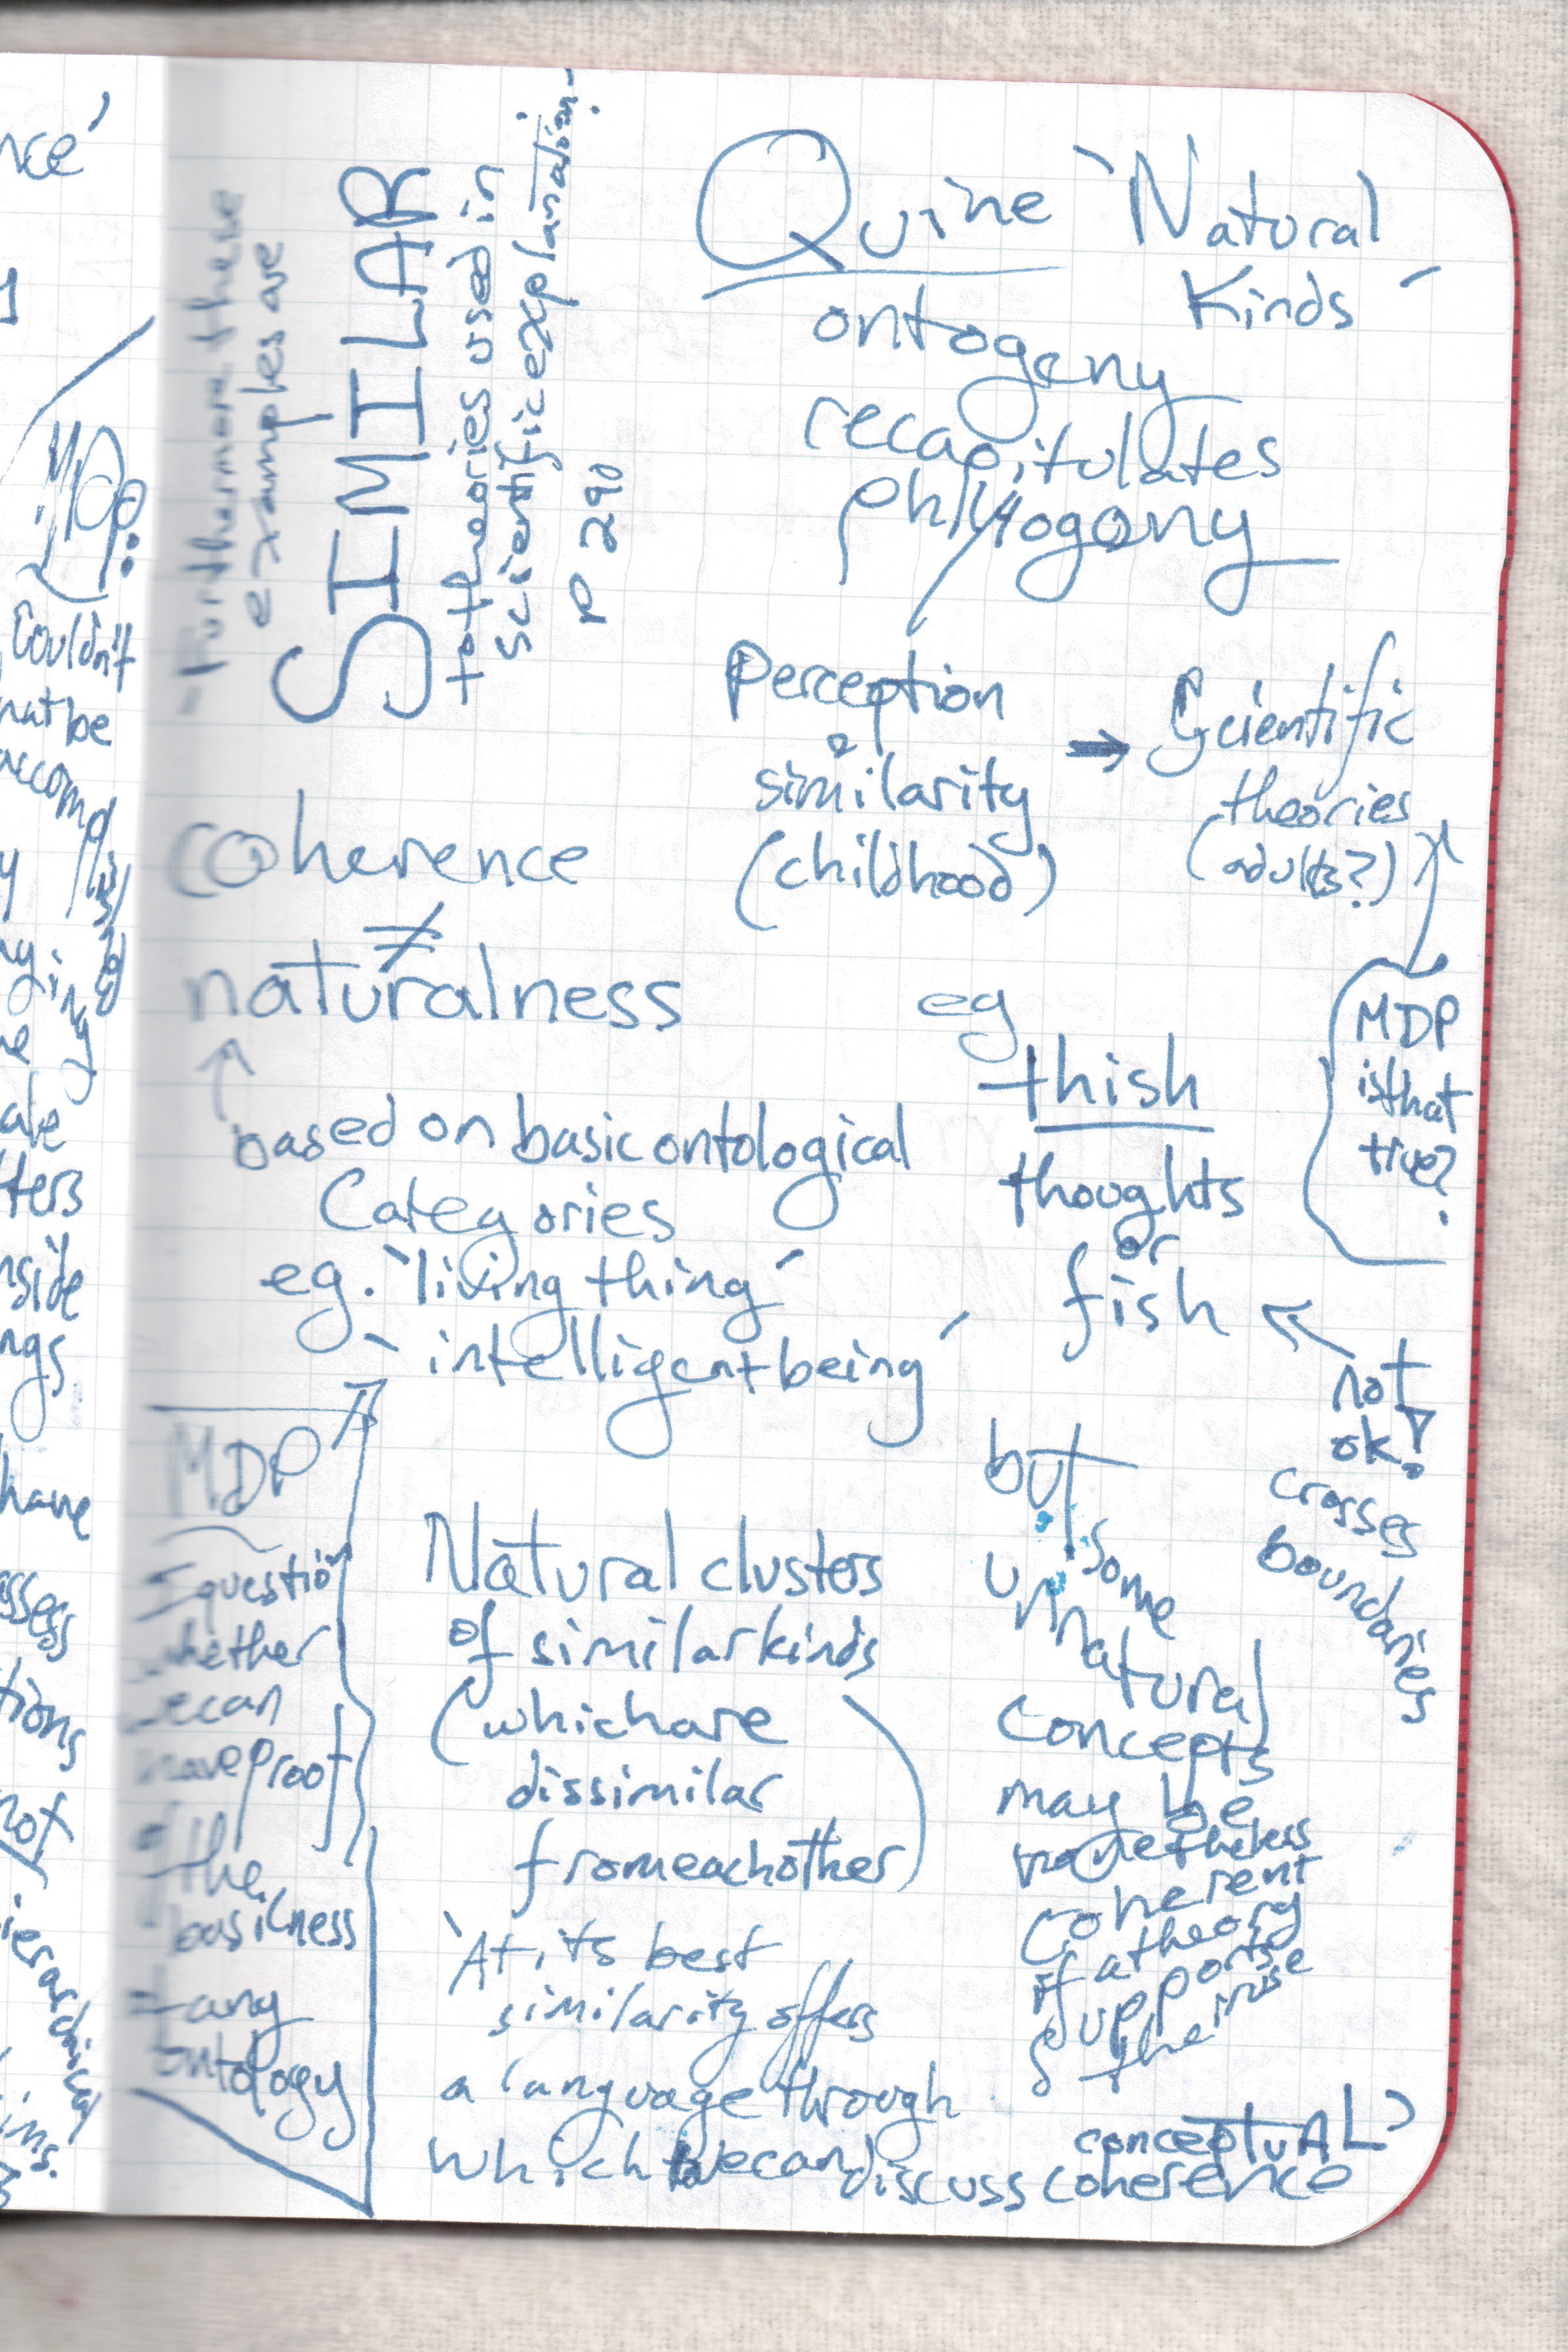 nce'
MDP:
Couldn't
that be
accomplis
ate
ters
nside
ngs
have
assess
tions
not
- Furthermore these
examples are
SIMILAR
to theories used in
scientific explanation -
p 290
Quine 'Natural
Kinds'
ontogeny
recapitulates
phylogony
Perception
similarity
(childhood)
→ Scientific
theories
(adults?)
MDP
is that
true?
coherence
≠
naturalness
↑
based on basic ontological
Categories
eg. 'living thing'
'intelligent being'
eg
thish
thoughts
or
fish
not
ok!
crosses
boundaries
MDP
I question
whether
we can
have proof
of
the
basicness
of any
ontology
Natural clusters
of similar kinds
(which are
dissimilar
from each other)
'At its best
similarity offers
a language through
which we can discuss coherence
conceptuAL'
but some
unnatural
concepts
may be
nonetheless
coherent
if a theory
supports
their use